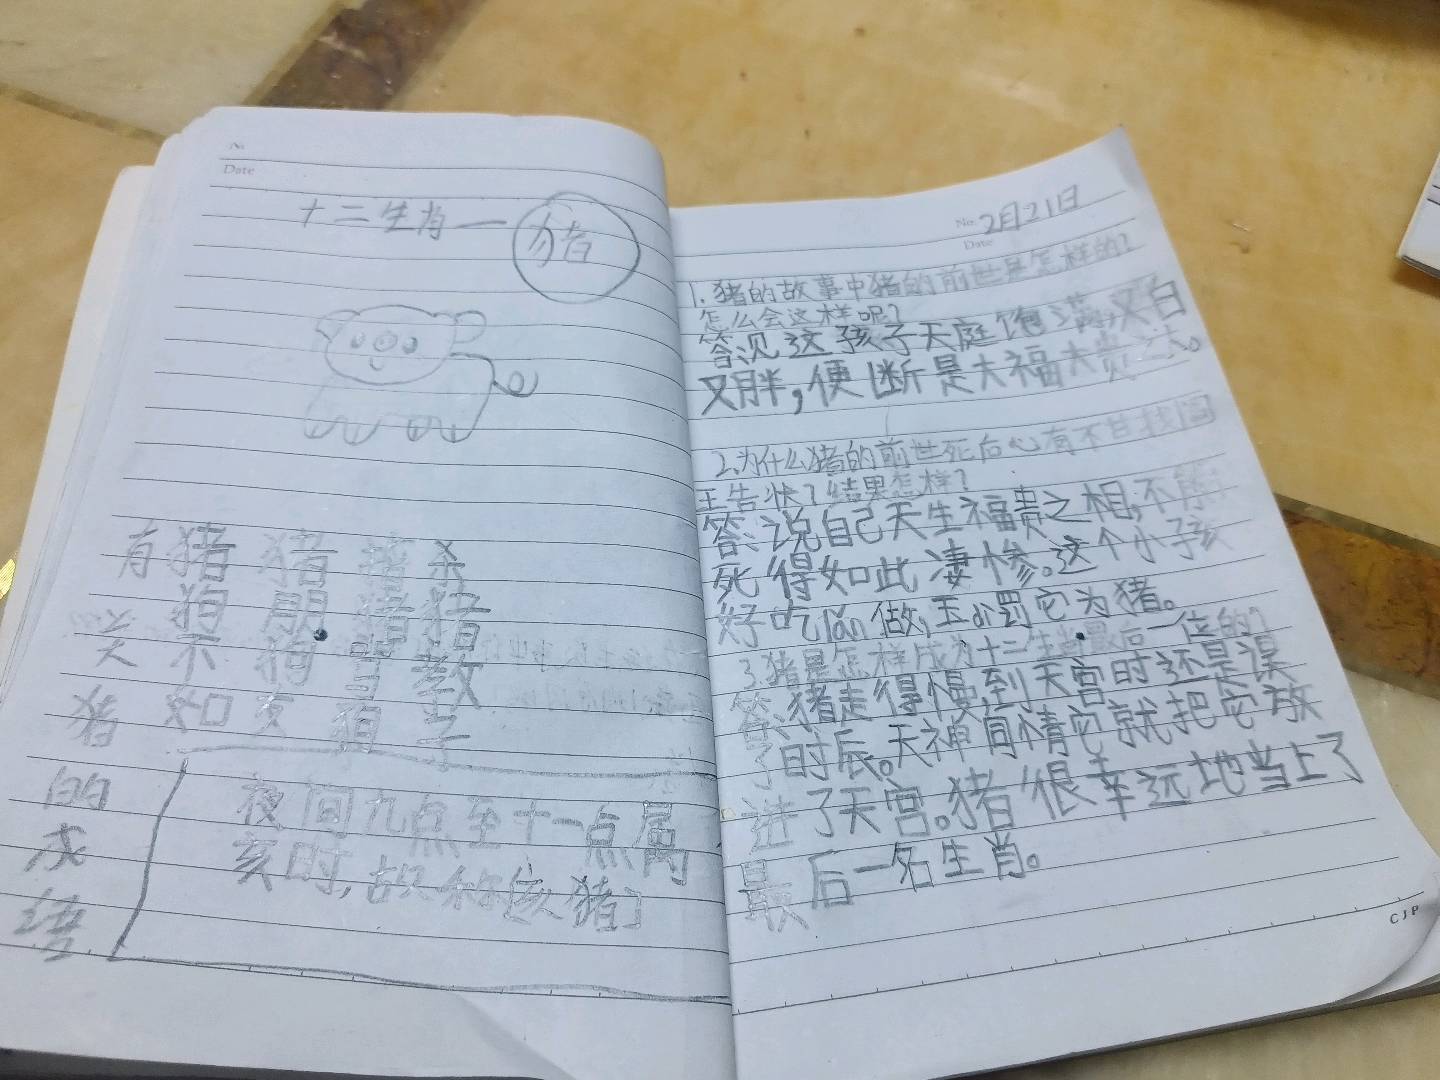 No
Date
十二生肖一猪
有猪猪 杀
狗朋猪猪
关不狗 教
猪如友狗子
的
成
语
夜间九点至十一点属
亥时,故称[亥猪]
No. 2月21日
Date
1.猪的故事中猪的前世是怎样的?
怎么会这样呢?
答:见这孩子天庭饱满,又白
又胖,便断是大福大贵之人。
2.为什么猪的前世死后心有不甘找阎
王告状?结果怎样?
答:说自己天生福贵之相,不
死得如此凄惨。这个小孩
好吃lǎn做,玉di罚它为猪。
3.猪是怎样成为十二生肖最后一位的?
答:猪走得慢,到天宫时还是误
了时辰。天神同情它就把它放
进了天宫。猪很幸远地当上了
最后一名生肖。
CJP